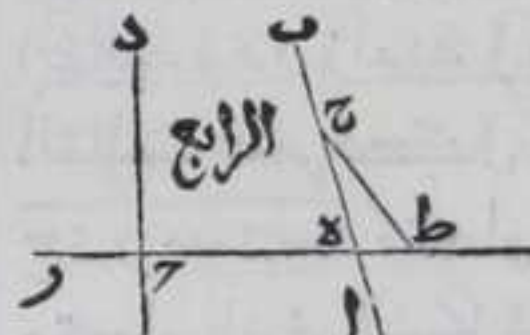 د ب
الرابع ح
ه ط
ر ح
ا